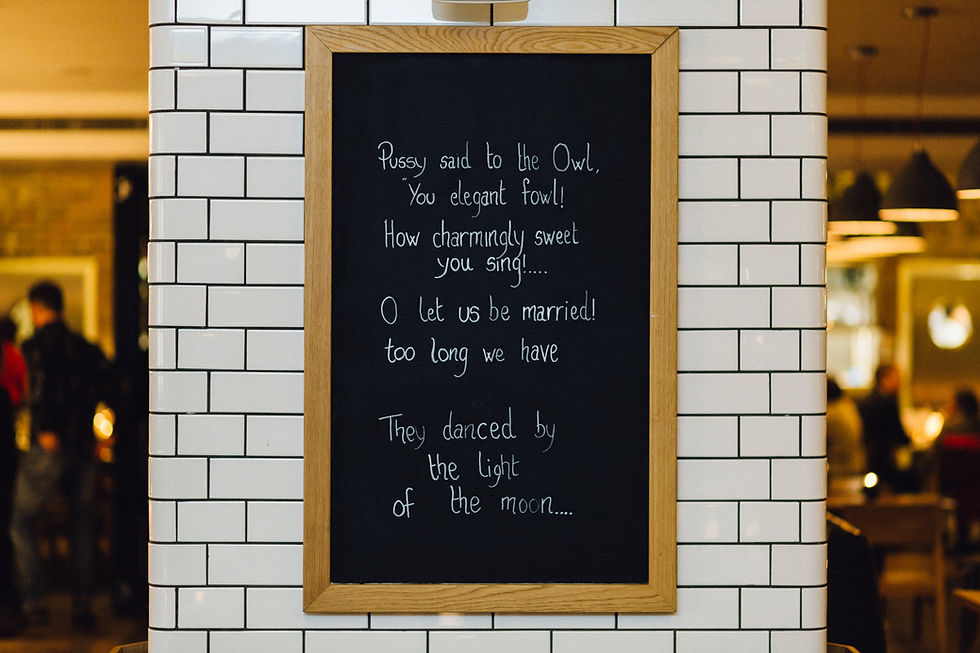 Pussy said to the Owl,
"You elegant fowl!
How charmingly sweet
you sing!....
O let us be married!
too long we have
They danced by
the light
of the moon....